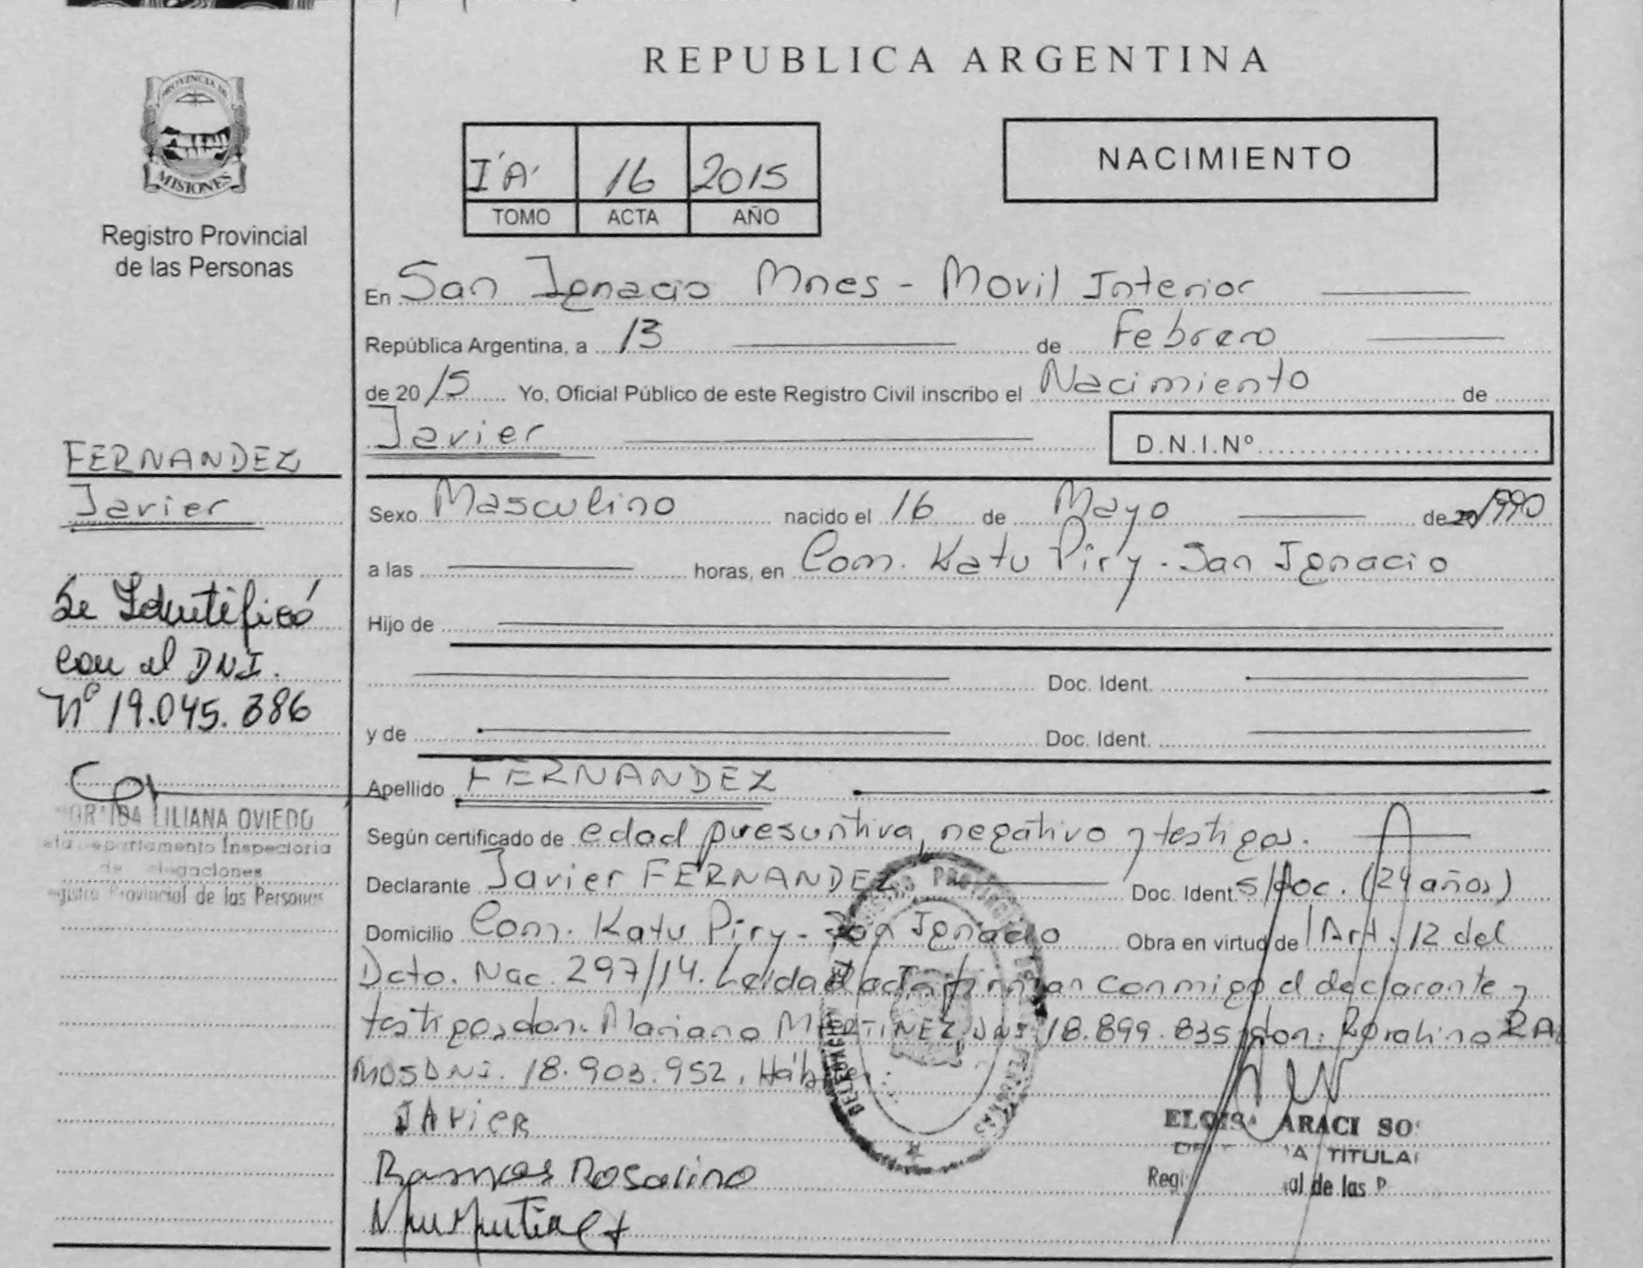 REPUBLICA ARGENTINA
PROVINCIA DE
MISIONES
Registro Provincial
de las Personas
I "A" 16 2015
TOMO ACTA AÑO
NACIMIENTO
En San Ignacio Mnes - Movil Interior
República Argentina, a 13 de Febrero
de 20 15 Yo, Oficial Público de este Registro Civil inscribo el Nacimiento de
Javier
D.N.I.Nº
FERNANDEZ
Javier
Se Identificó
con el DNI.
Nº 19.045.386
LILIANA OVIEDO
Departamento Inspectoria
de Delegaciones
Registro Provincial de las Personas
Sexo Masculino nacido el 16 de Mayo de 20 1990
a las horas, en Com. Katu Piry - San Ignacio
Hijo de
Doc. Ident.
y de Doc. Ident.
Apellido FERNANDEZ
Según certificado de edad presuntiva, negativo y testigos.
Declarante Javier FERNANDEZ Doc. Ident. s/doc. (24 años)
Domicilio Com. Katu Piry - San Ignacio Obra en virtud de Art. 12 del
Dcto. Nac. 297/14. Leida el acta firman conmigo el declarante y
testigos don: Mariano MARTINEZ DNI 18.899.835 y don: Rosalino RA
MOS DNI. 18.903.952, Hábiles:
JAViER
Ramos Rosalino
ELOISA ARACI
TITULAR